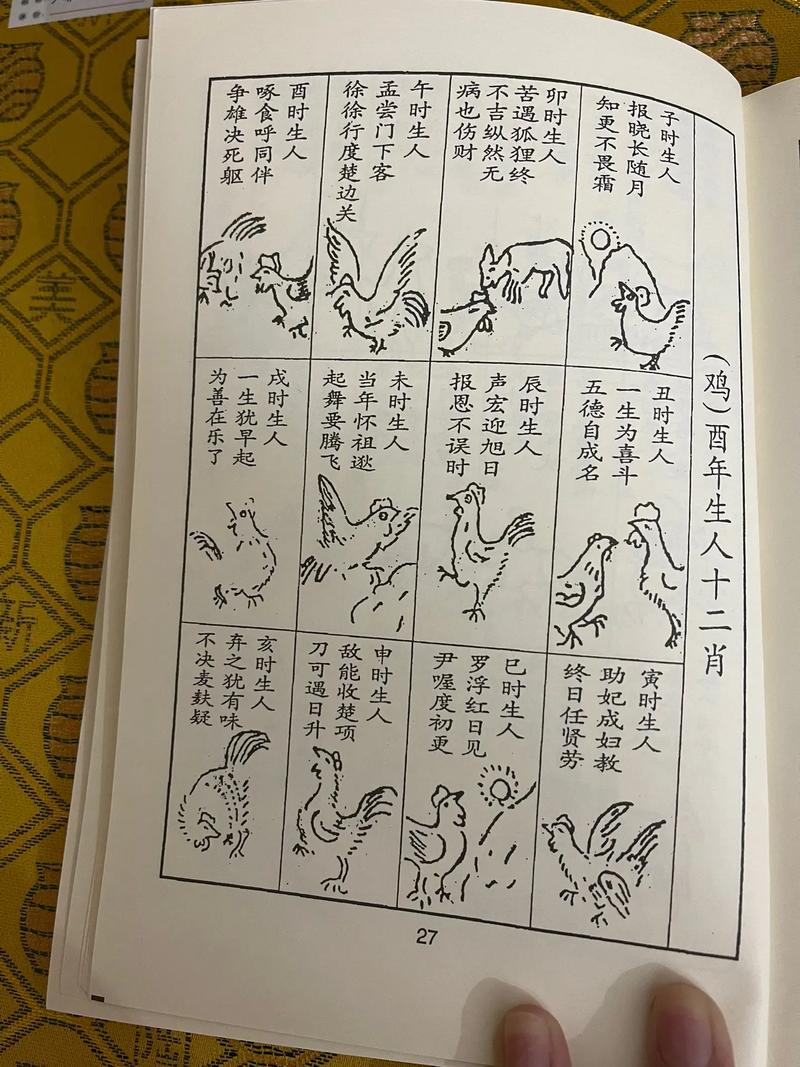 (鸡)酉年生人十二肖
子时生人
报晓长随月
知更不畏霜
丑时生人
一生为喜斗
五德自成名
寅时生人
助妃成妇教
终日任贤劳
卯时生人
苦遇狐狸终
不吉纵然无
病也伤财
辰时生人
声宏迎旭日
报恩不误时
巳时生人
罗浮红日见
尹喔度初更
午时生人
孟尝门下客
徐徐行度楚边关
未时生人
当年怀祖逖
起舞要腾飞
申时生人
敌能收楚项
刀可遇日升
酉时生人
啄食呼同伴
争雄决死躯
戌时生人
一生犹早起
为善在乐了
亥时生人
弃之犹有味
不决麦麸疑
27